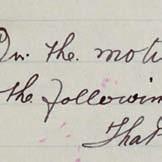 On the moti
the followin
That